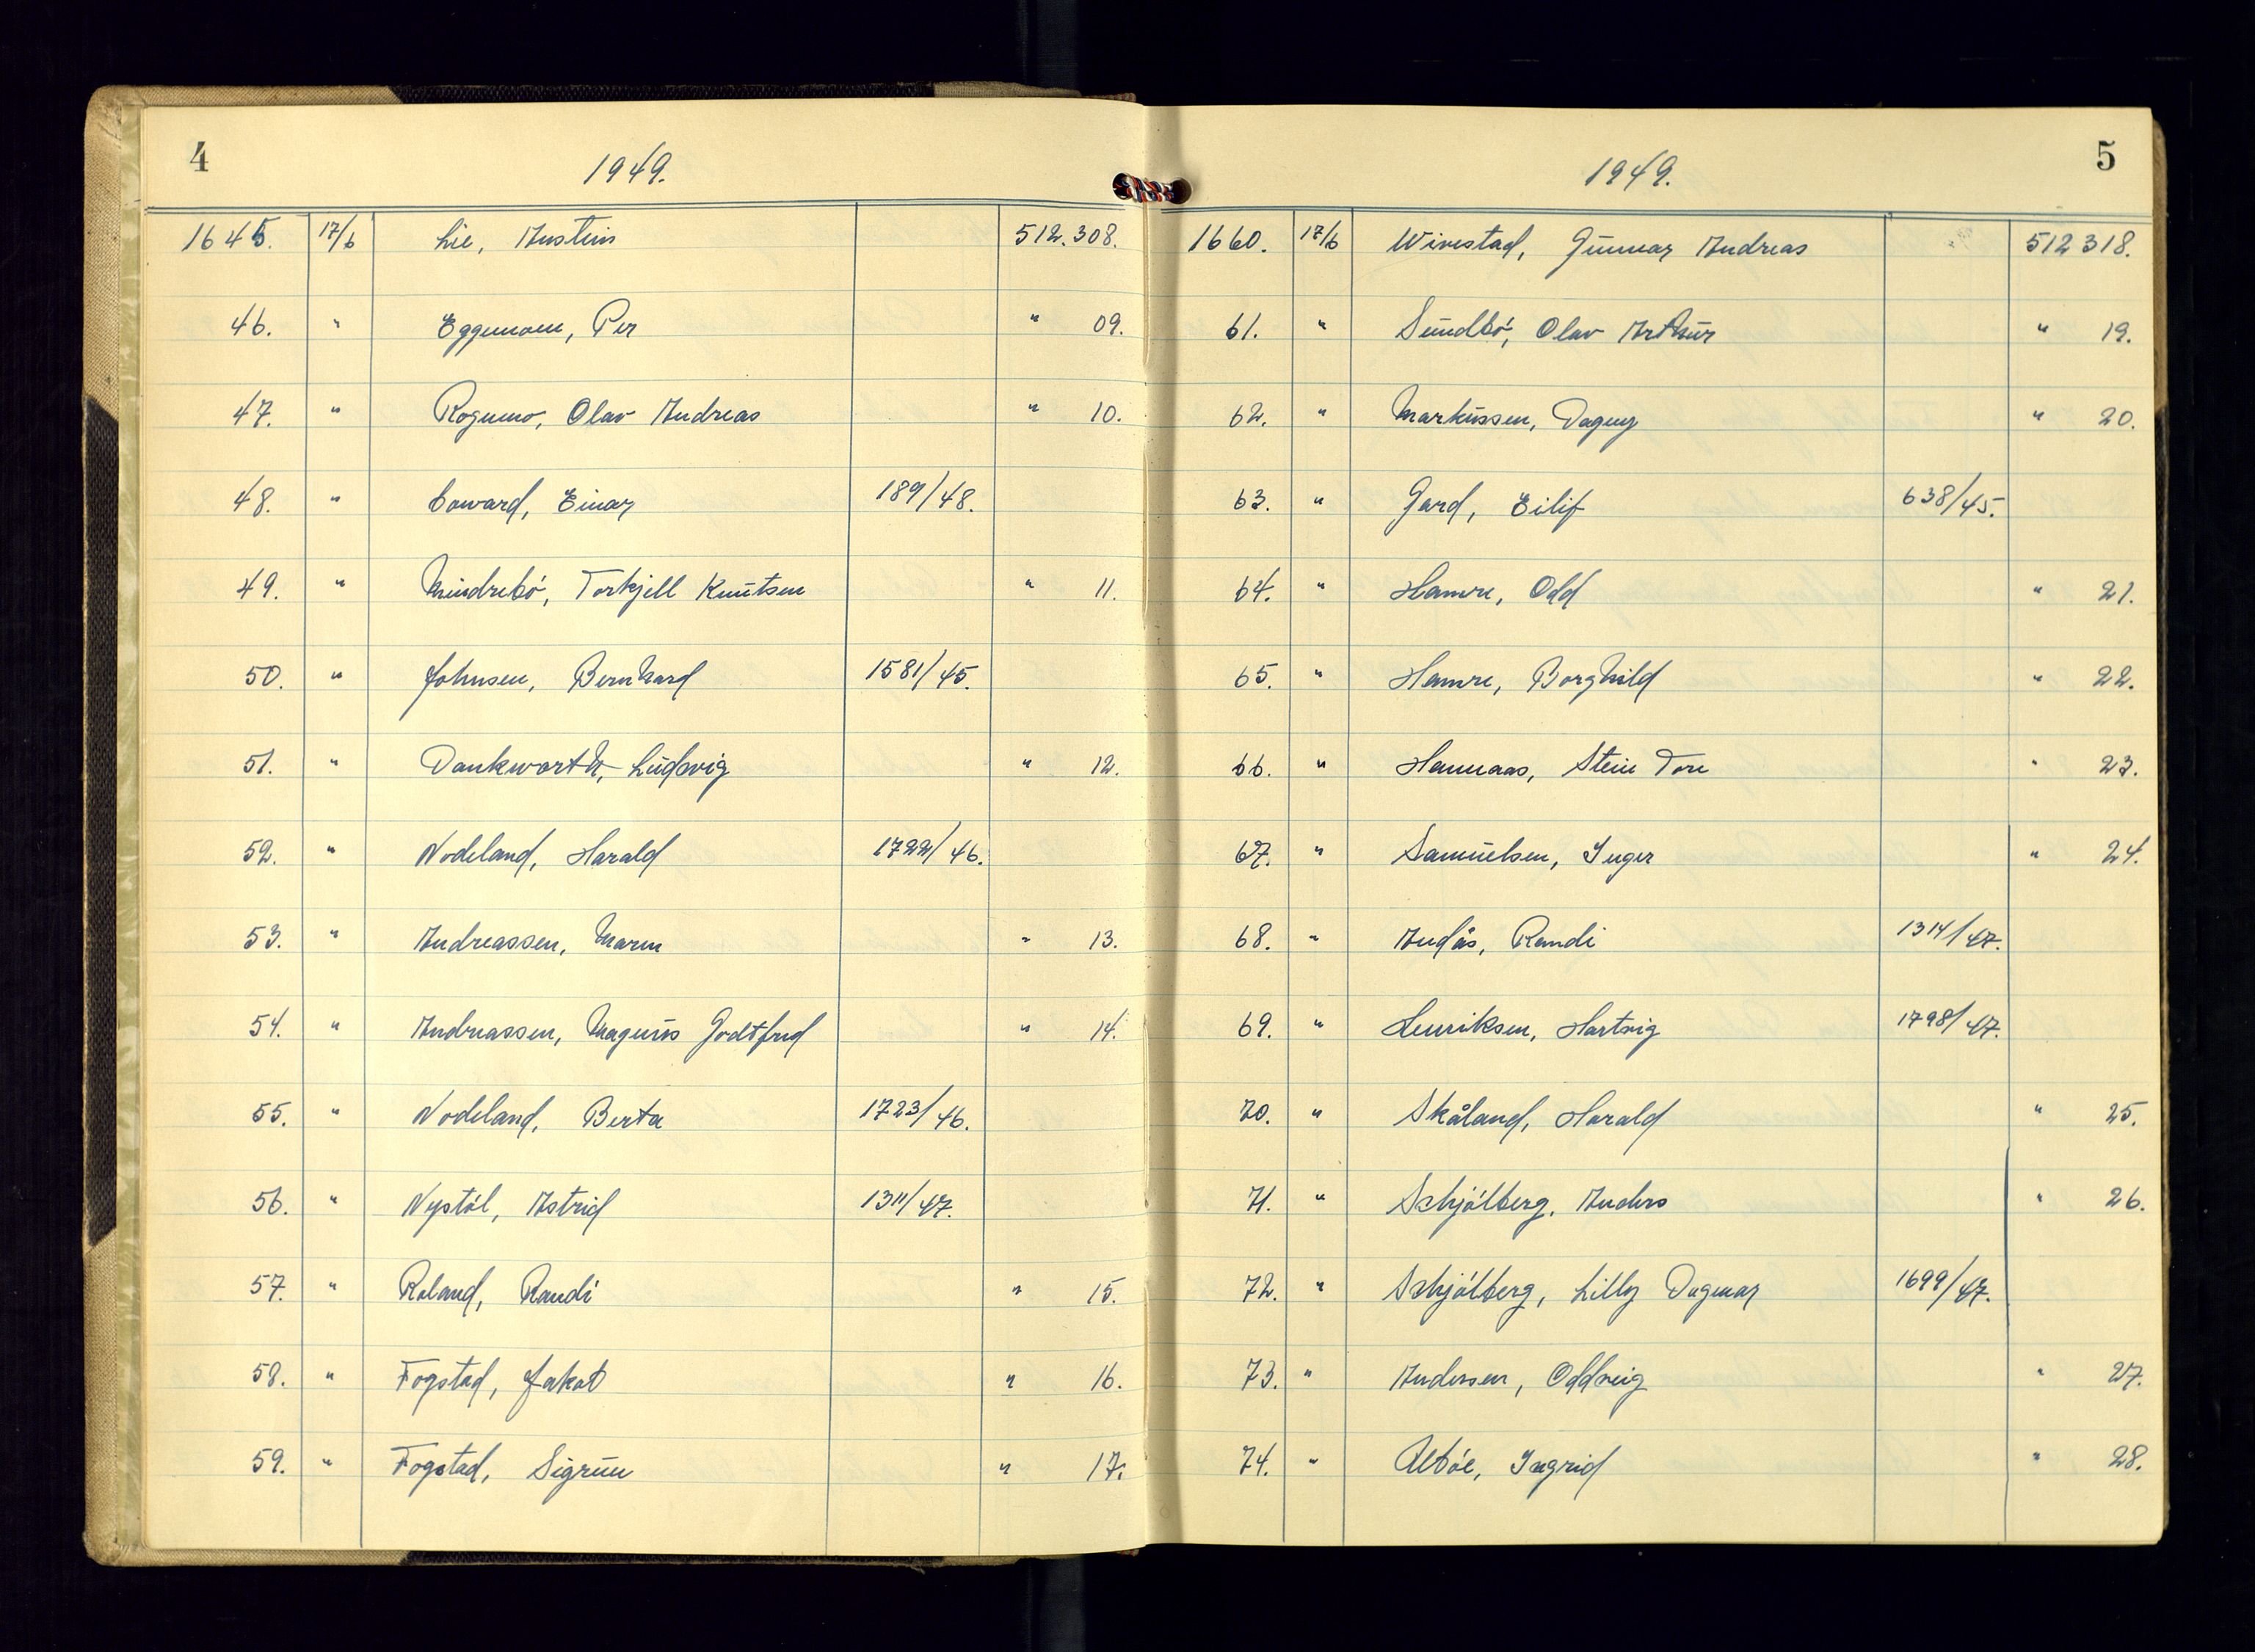 4
1949.
1645. 17/6 Lie, Austein 512.308.
46. " Eggemoen, Per " 09.
47. " Rogumo, Olav Andreas " 10.
48. " Coward, Einar 189/48.
49. " Mindrebó, Torkjell Knutsen " 11.
50. " Johnsen, Bernhard 1581/45.
51. " Dankwarth, Ludvig " 12.
52. " Nodeland, Harald 1722/46.
53. " Andreassen, Maren " 13.
54. " Andreassen, Magnus Godtfred " 14.
55. " Nodeland, Berta 1723/46.
56. " Nystól, Astrid 1311/47.
57. " Roland, Randi " 15.
58. " Fogstad, Jakob " 16.
59. " Fogstad, Sigrun " 17.
5
1949.
1660. 17/6 Wivestad, Gunnar Andreas 512318.
61. " Sundbó, Olav Arthur " 19.
62. " Markussen, Dagny " 20.
63. " Gard, Eilif 638/45.
64. " Hamre, Odd " 21.
65. " Hamre, Borghild " 22.
66. " Hannaas, Stein Tore " 23.
67. " Samuelsen, Inger " 24.
68. " Andås, Randi 1314/47.
69. " Henriksen, Hartvig 1798/47.
70. " Skåland, Harald " 25.
71. " Schjólberg, Anders " 26.
72. " Schjólberg, Lilly Dagmar 1699/47.
73. " Andersen, Oddveig " 27.
74. " Albóe, Ingrid " 28.